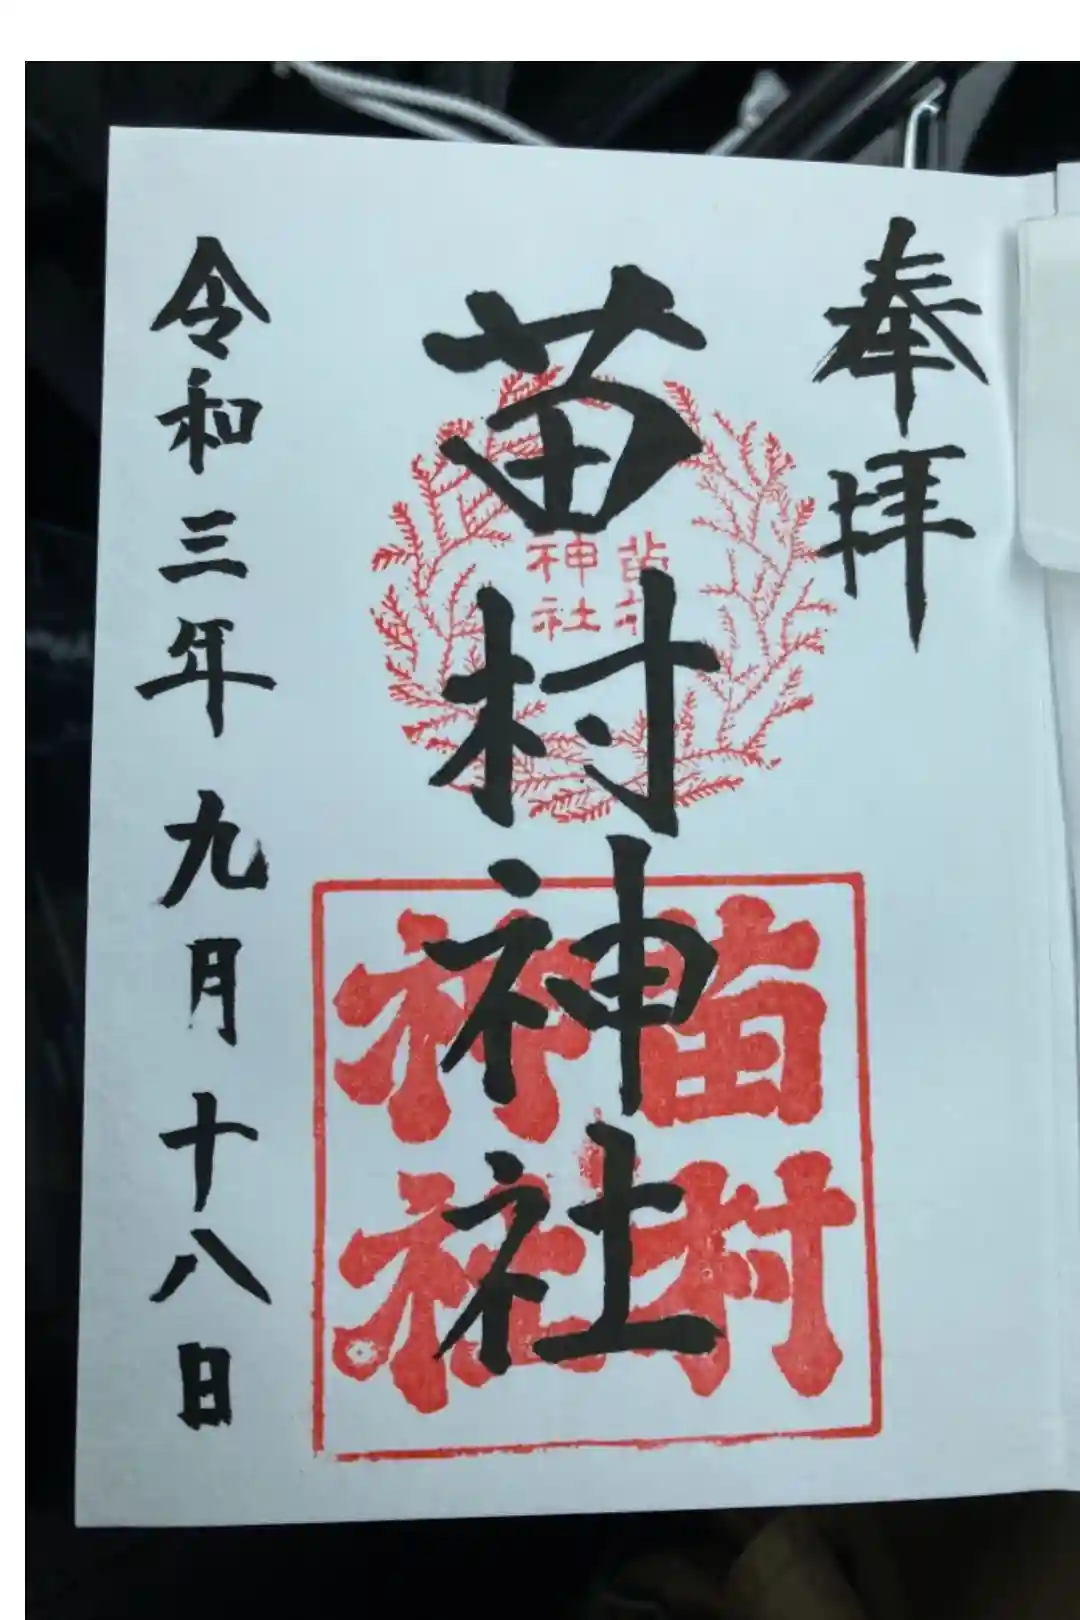 奉拝
苗村神社
苗村
神社
苗村
神社
令和三年九月十八日